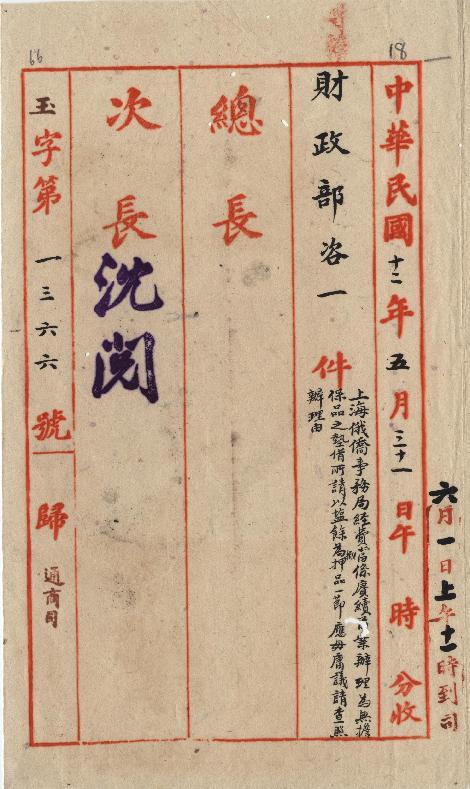 18
66
中華民國十二年五月三十一日午 時 分收
六月一日上午十一時到司
財政部咨一件
上海俄僑事務局經費
保品之墊借所請以鹽餘為押品一節應毋庸議請查照
辦理由
總長
次長
沈閱
玉字第一三六六號歸
通商司